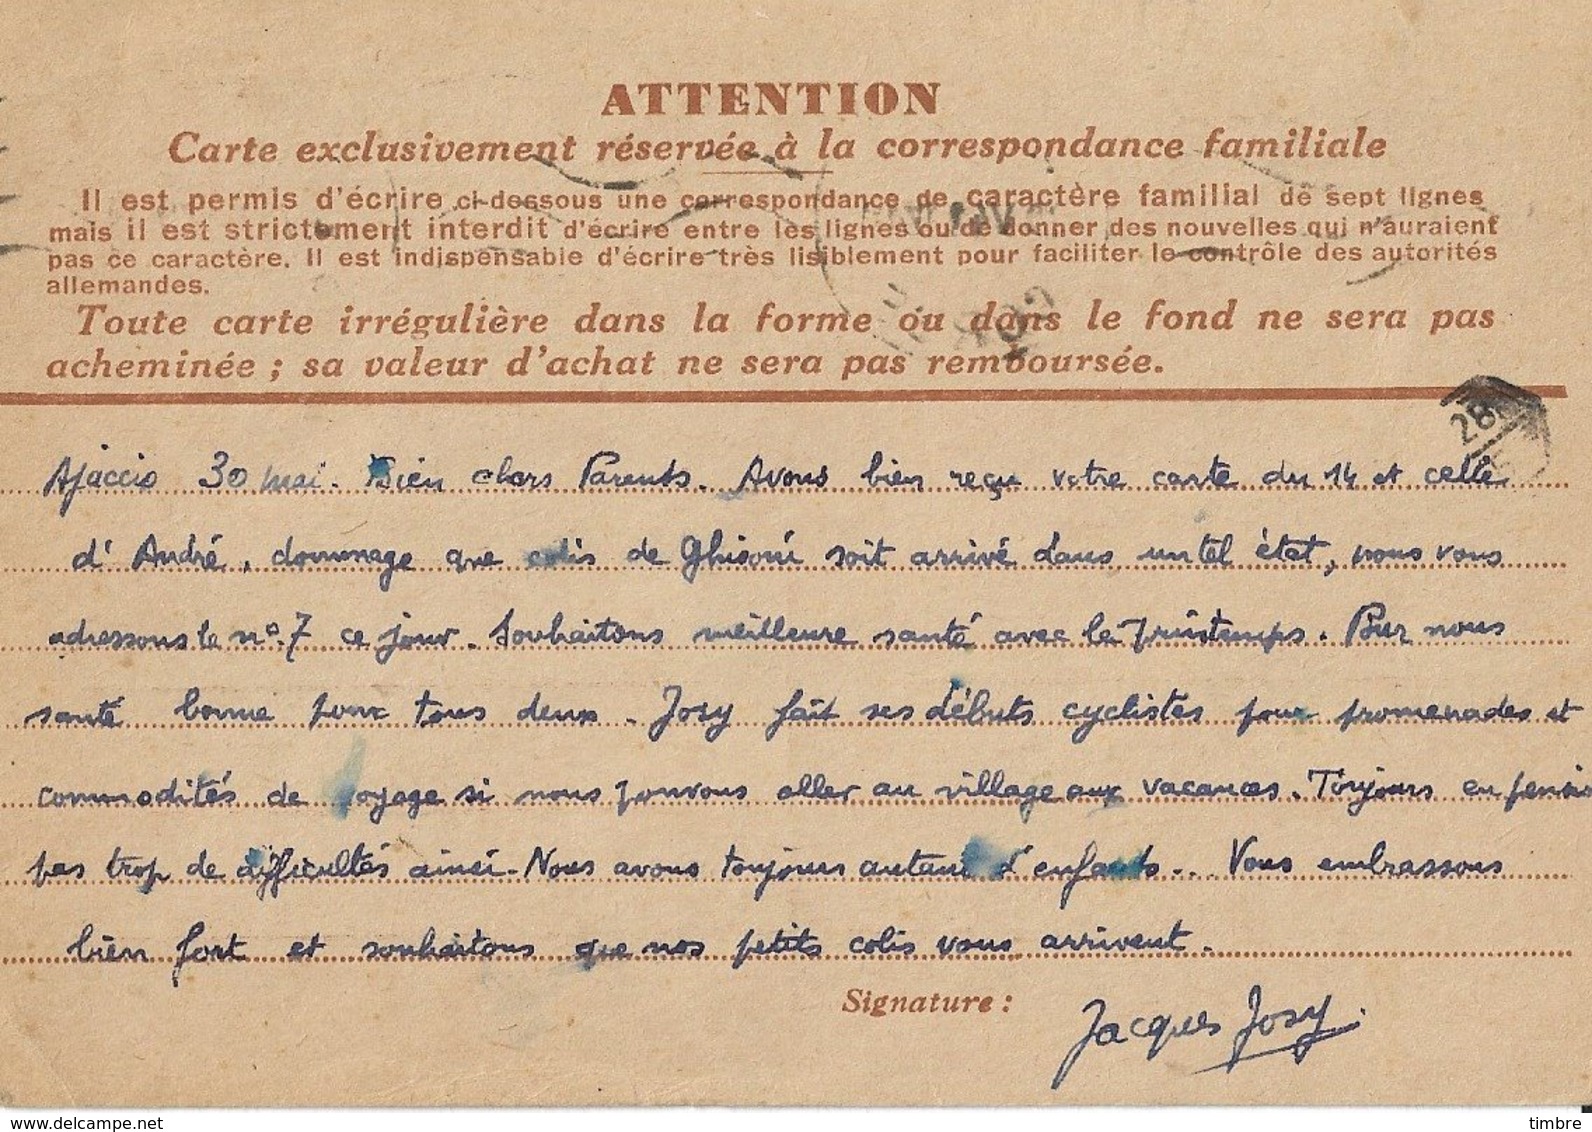 ATTENTION
Carte exclusivement réservée à la correspondance familiale
Il est permis d'écrire ci-dessous une correspondance de caractère familial de sept lignes
mais il est strictement interdit d'écrire entre les lignes ou de donner des nouvelles qui n'auraient
pas ce caractère. Il est indispensable d'écrire très lisiblement pour faciliter le contrôle des autorités
allemandes.
Toute carte irrégulière dans la forme ou dans le fond ne sera pas
acheminée ; sa valeur d'achat ne sera pas remboursée.
28
Ajaccio 30 mai. Bien chers Parents. Avons bien reçu votre carte du 14 et celle
d'André, dommage que colis de Ghisoni soit arrivé dans un tel état, nous vous
adressons le n° 7 ce jour. Souhaitons meilleure santé avec le printemps. Pour nous
santé bonne pour tous deux. Josy fait ses débuts cyclistes pour promenades et
commodités de voyage si nous pouvons aller au village aux vacances. Toujours en pensio
pas trop de difficultés ainsi. Nous avons toujours autant d'enfants... Vous embrassons
bien fort et souhaitons que nos petits colis vous arrivent.
Signature :
Jacques Josy.
delcampe.net
timbre